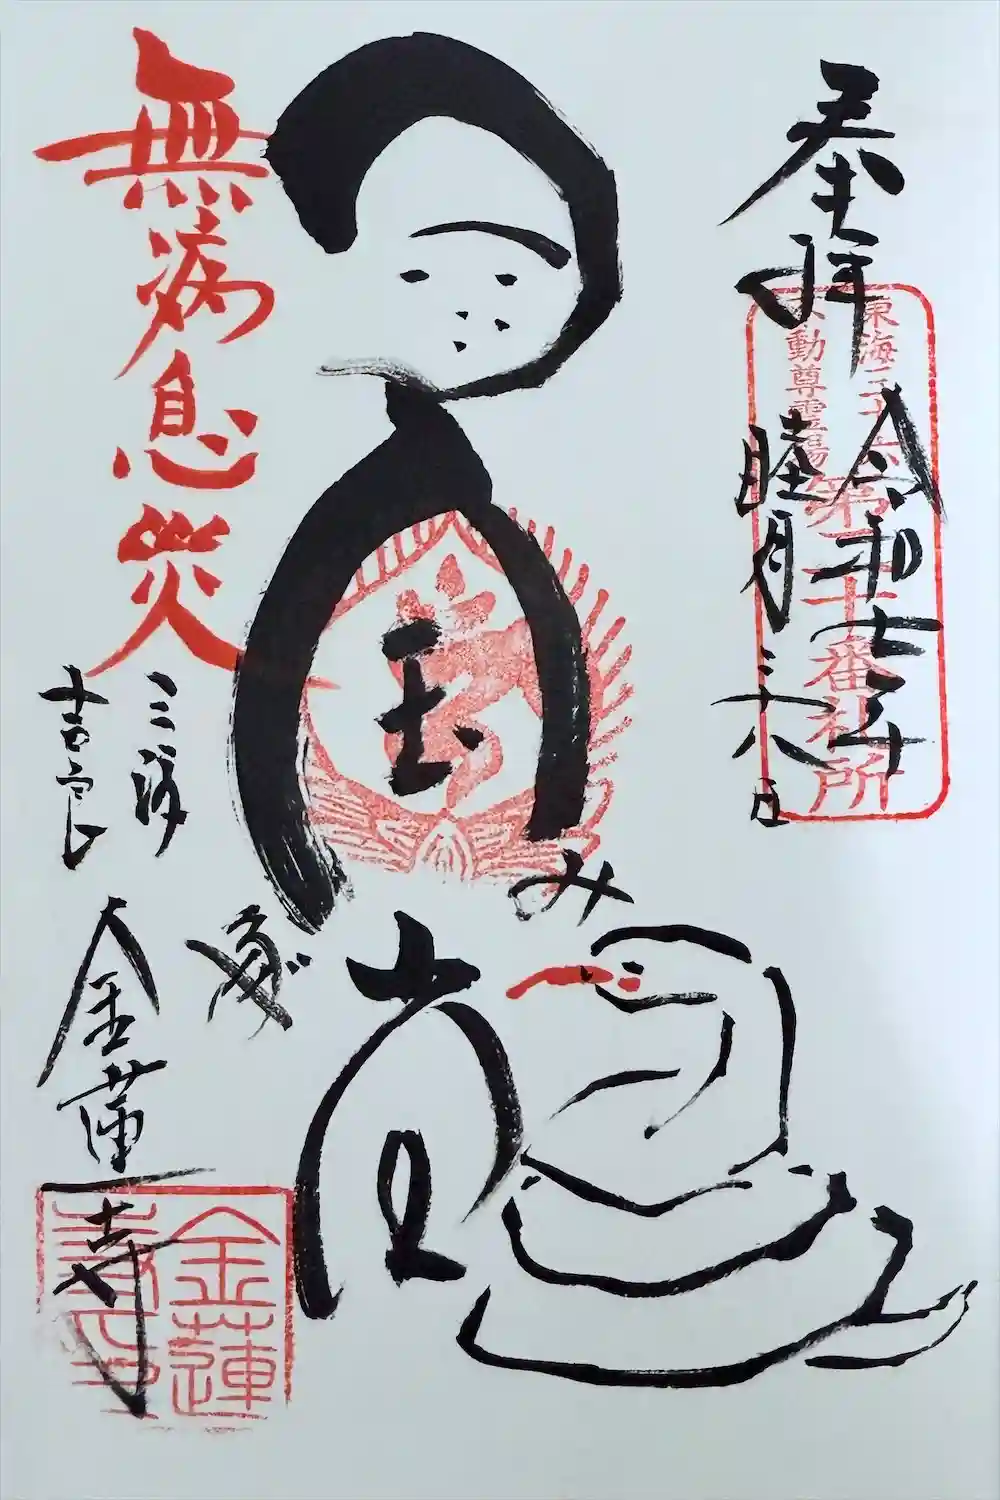 奉拝
令和七年
睦月二十八日
東海三十六
不動尊霊場
第二十番札所
無病息災
国
み
三河
吉良
金蓮寺
金蓮
寺印